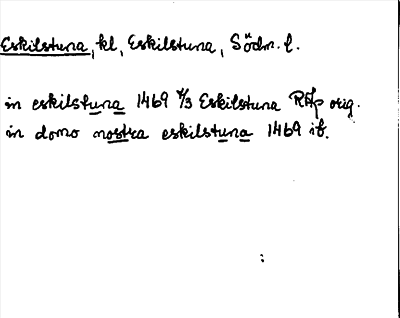 Eskilstuna, kl, Eskilstuna, Södm. l.
in eskilstuna 1469 4/3 Eskilstuna RAp orig.
in domo nostra eskilstuna 1469 ib.